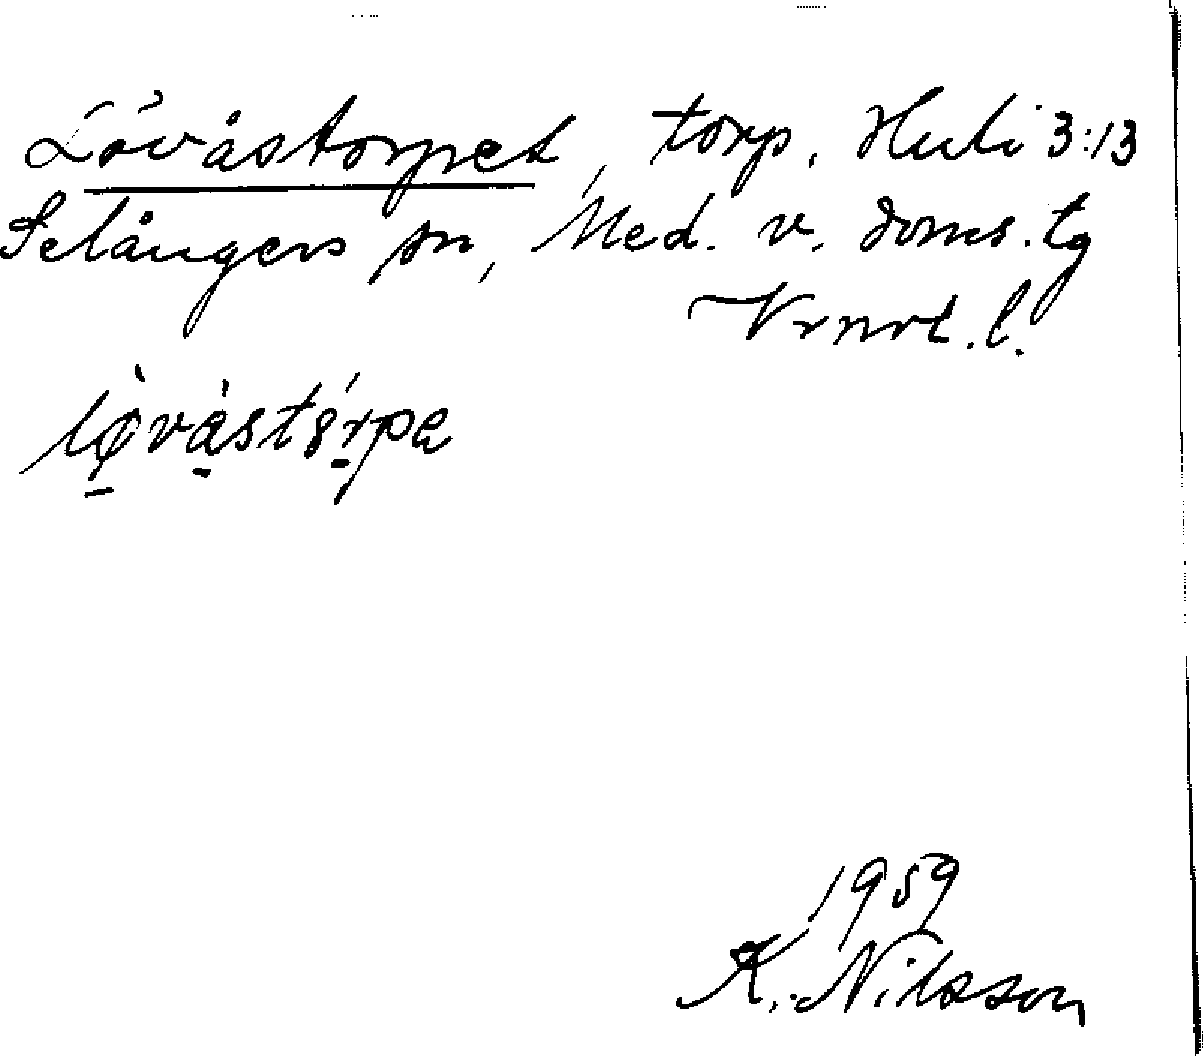 Lövåstorpet, torp, Huli 3:13
Selångers sn, Med. v. doms. tg
Vrnrl. l.
løvåstørpa
1959
K. Nilsson